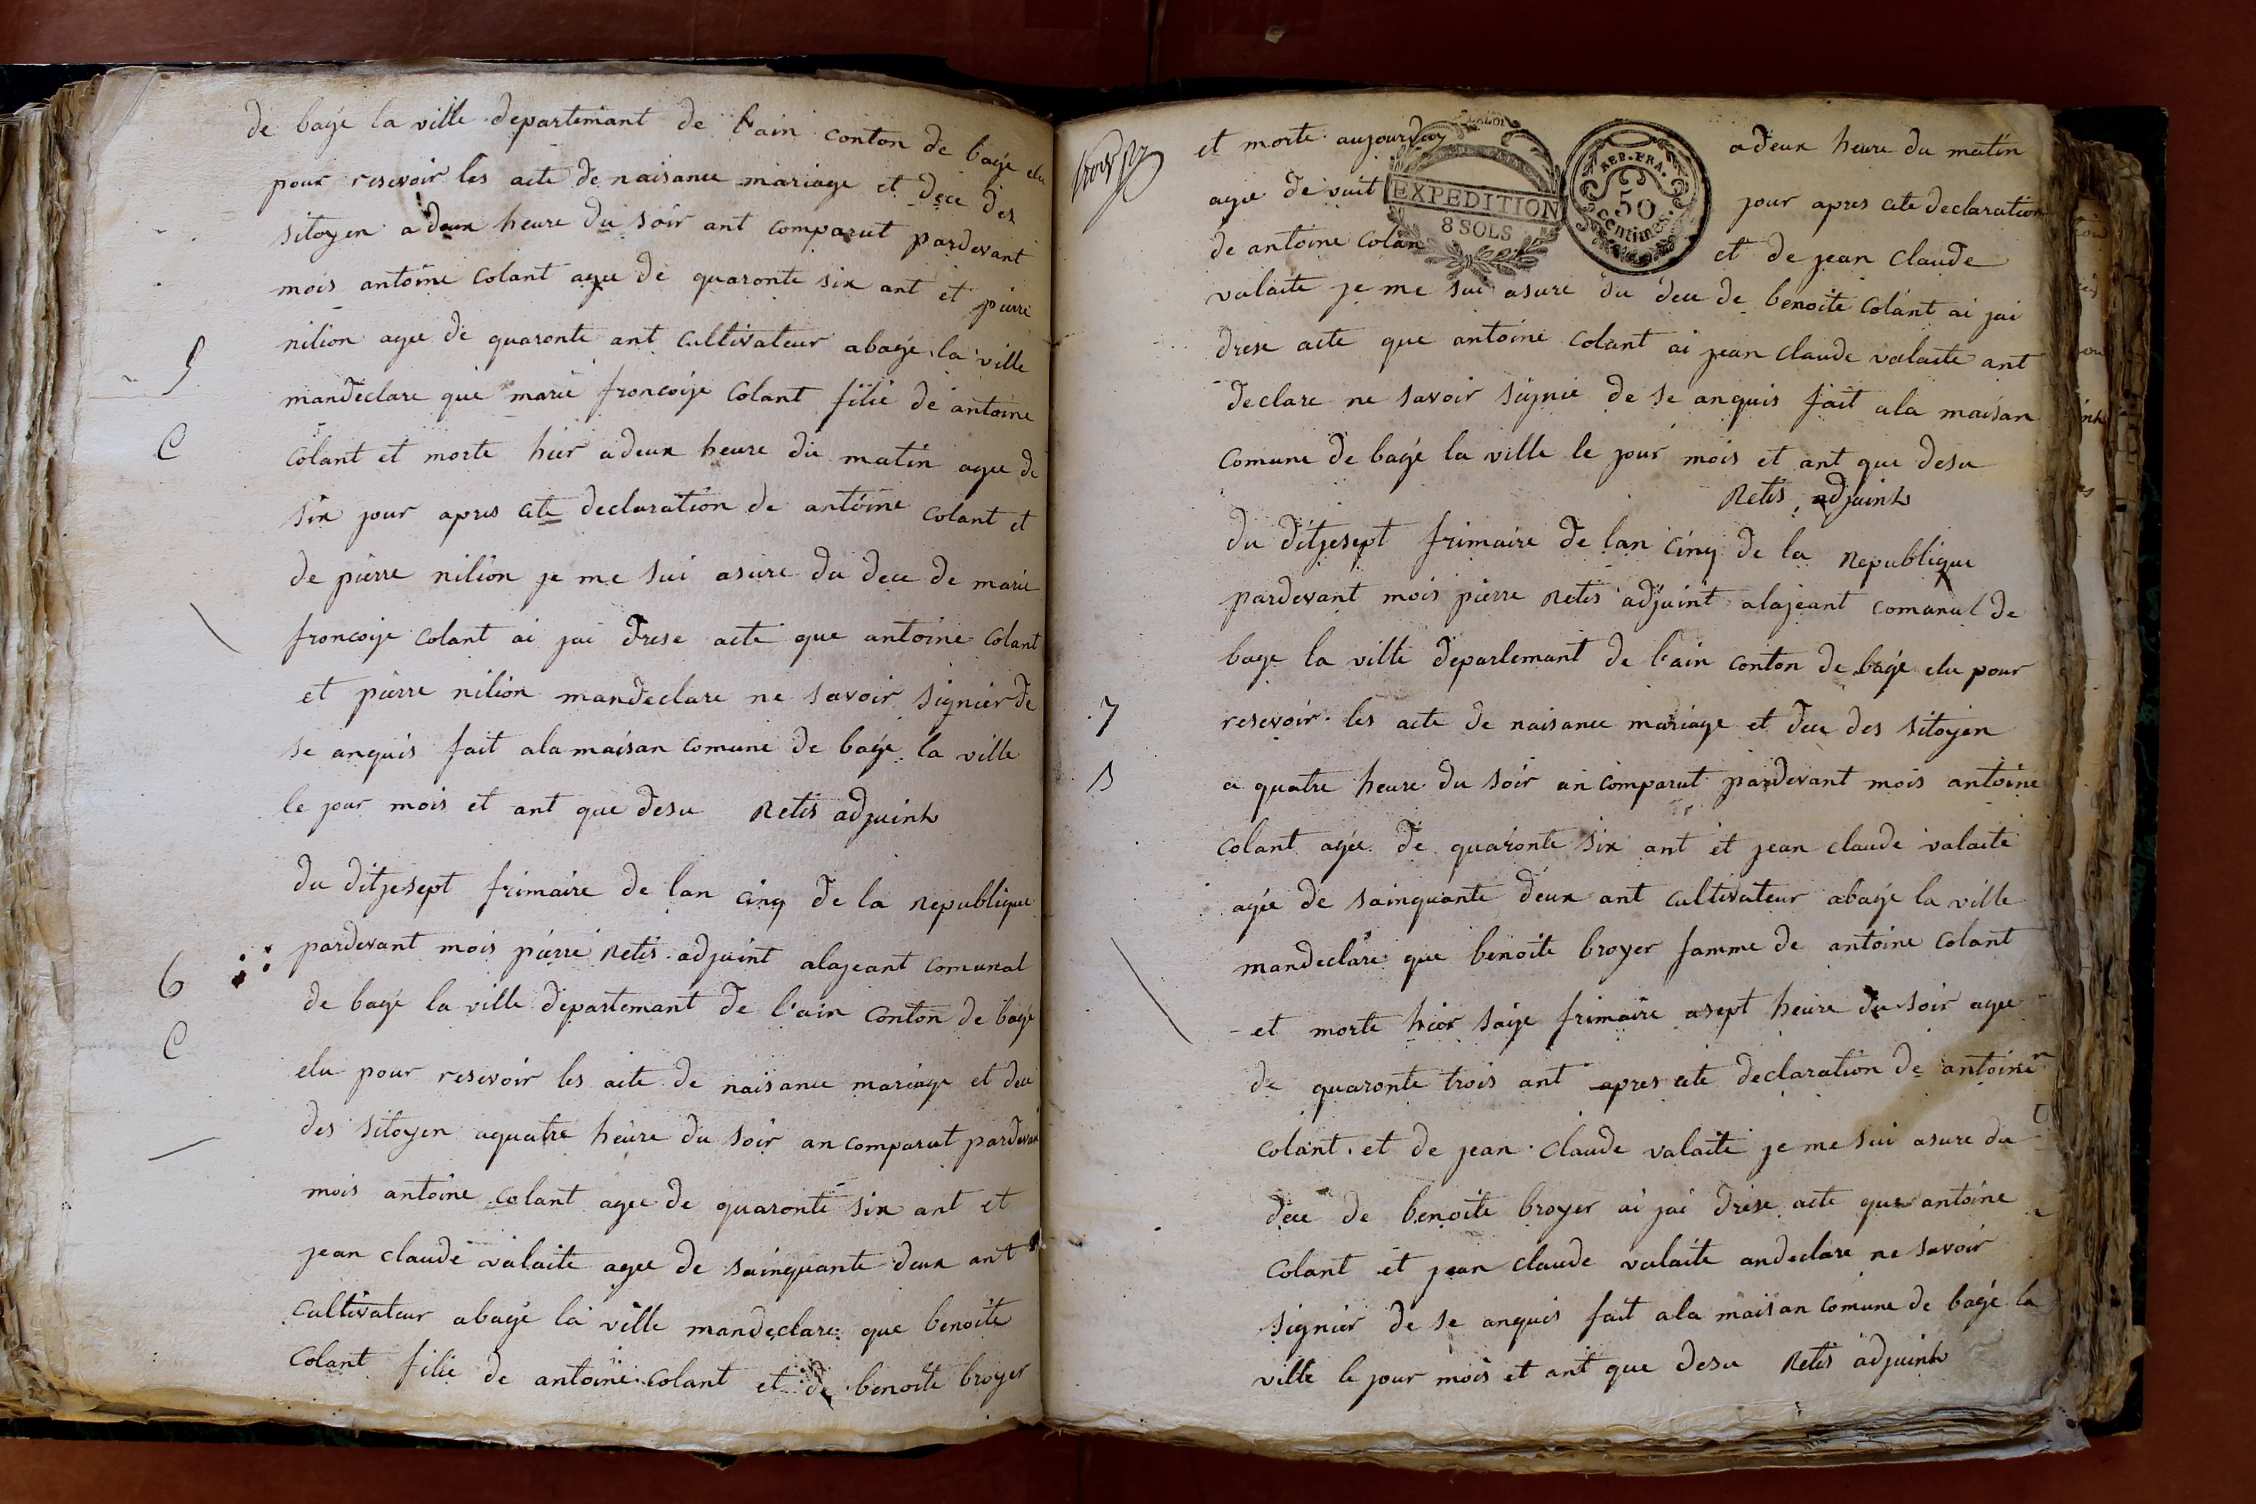 de bagé la ville departemant de l'ain conton de bagé elu
pour resevoir les acte de naisance mariage et dece des
sitoyen a deux heure du soir ant comparut pardevant
mois antoine colant agee de quaronte six ant et pierre
nilion agee de quaronte ant cultivateur abagé la ville
5
mandeclare que marie froncoise colant filie de antoine
C
colant et morte hier adeux heure du matin agee de
six jour apres cete declaration de antoine colant et
de pierre nilion je me sui asure du dece de marie
froncoise colant ai jai drese acte que antoine colant
et pierre nilion mandeclare ne savoir signier de
se anquis fait ala maisan comune de bagé la ville
le jour mois et ant que desu Retis adjuint
du ditjesept frimaire de lan cinq de la Republique
pardevant mois pierre Retis adjuint alajeant comunal
6
de bagé la ville departemant de l'ain conton de bagé
C
elu pour resevoir les acte de naisance mariage et dece
des sitoyen aquatre heure du soir an comparut pardevant
mois antoine colant agee de quaronte six ant et
jean claude valaite agee de sainquante deux ant
cultivateur abagé la ville mandeclare que benoite
colant filie de antoine colant et de benoite broyer
et morte aujourduy a deux heure du matin
EXPEDITION
8 SOLS
REP. FRA.
50
Centimes.
agee de vuit jour apres cete declaration
de antoine colan et de jean claude
valaite je me sui asure du dece de benoite colant ai jai
drese acte que antoine colant ai jean claude valaite ant
declare ne savoir signie de se anquis fait ala maisan
comune de bagé la ville le jour mois et ant que desu
Retis adjuint
du ditjesept frimaire de lan cinq de la Republique
pardevant mois pierre Retis adjuint alajeant comunal de
bage la ville departemant de l'ain conton de bagé elu pour
7
resevoir les acte de naisance mariage et dece des sitoyen
a quatre heure du soir an comparut pardevant mois antoine
colant agee de quaronte six ant et jean claude valaite
agée de sainquante deux ant cultivateur abagé la ville
mandeclare que benoite broyer famme de antoine colant
et morte hier saize frimaire asept heure du soir agee
de quaronte trois ant apres cete declaration de antoine
colant et de jean claude valaite je me sui asure du
dece de benoite broyer ai jai drese acte que antoine
colant et jean claude valaite andeclare ne savoir
signier de se anquis fait ala maisan comune de bagé la
ville le jour mois et ant que desu Retis adjuint